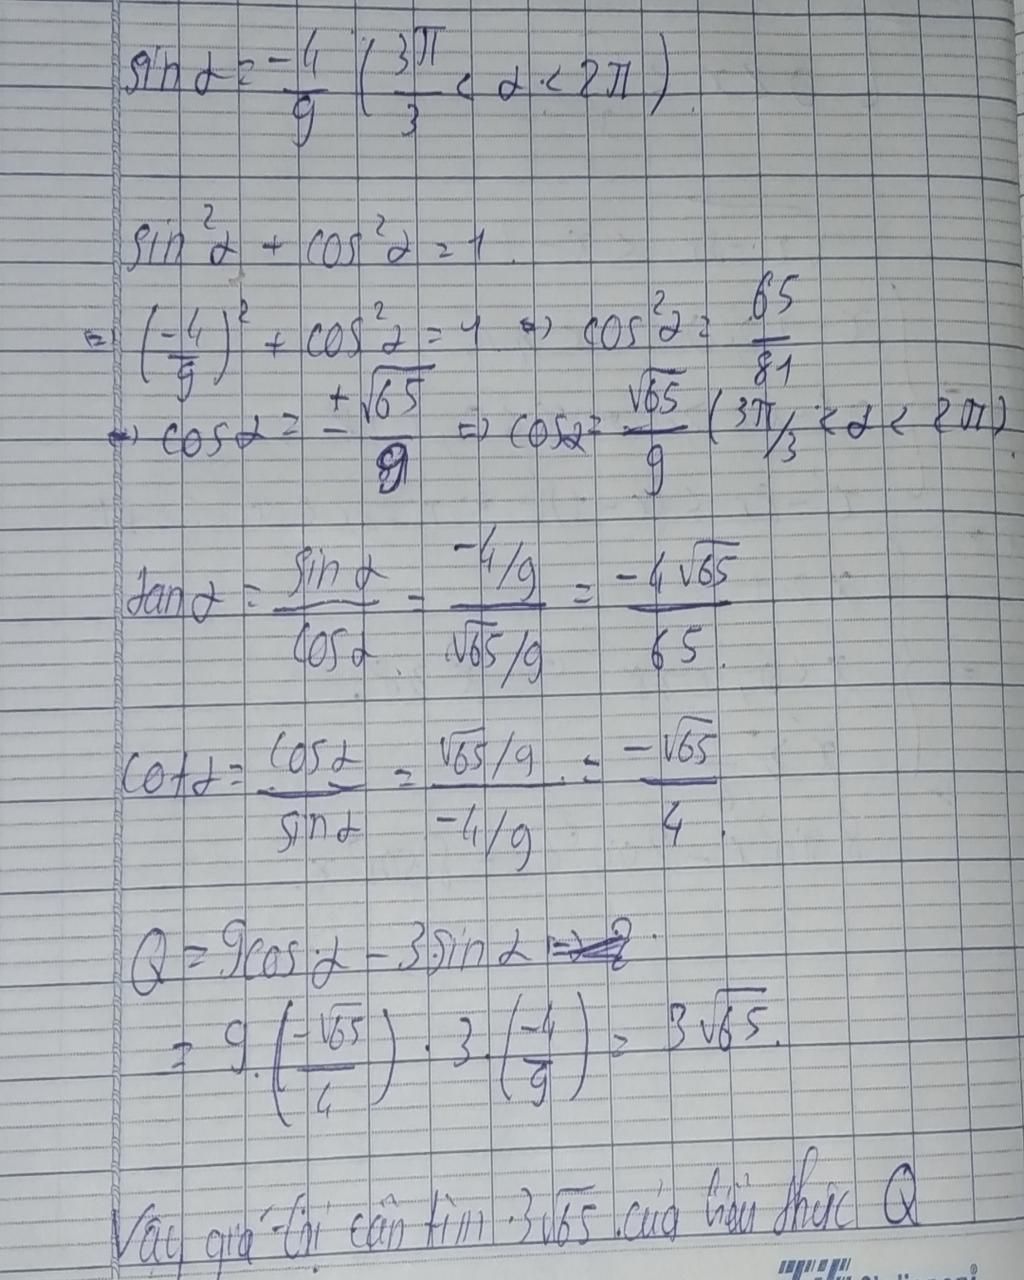 sin α = -4/9 ( 3π/3 < α < 2π )
sin²α + cos²α = 1.
⇒ (-4/9)² + cos²α = 1 ⇔ cos²α = 65/81
⇔ cos α = ± √65/9 ⇒ cos α = √65/9 ( 3π/3 < α < 2π ).
tan α = sin α/cos α = (-4/9)/(√65/9) = -4√65/65.
cot α = cos α/sin α = (√65/9)/(-4/9) = -√65/4.
Q = 9cos α - 3sin α
= 9.(-√65/4) . 3.(-4/9) = 3√65.
Vậy giá trị cần tìm 3√65 của biểu thức Q